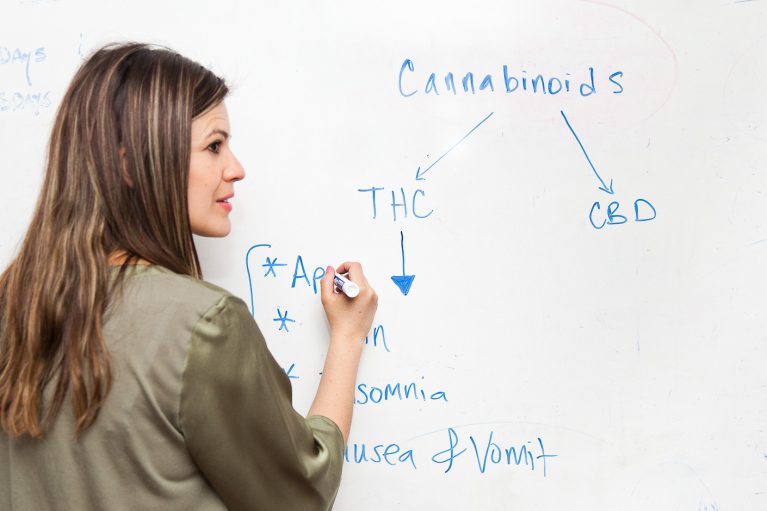 DAYS
DAYS
Cannabinoids
THC CBD
* Ap
* in
* somnia
usea & Vomit